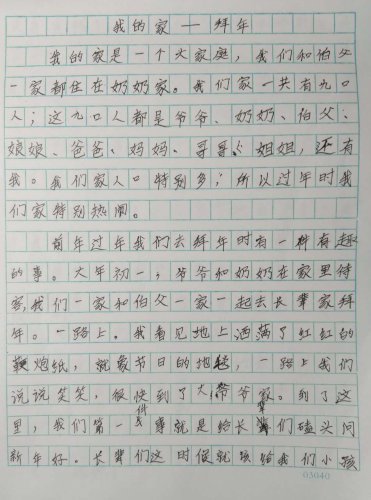 我的家——拜年
我的家是一个大家庭，我们和伯父
一家都住在奶奶家。我们家一共有九口
人；这九口人都是爷爷、奶奶、伯父、
娘娘、爸爸、妈妈、哥哥、姐姐，还有
我。我们家人口特别多；所以过年时我
们家特别热闹。
前年过年我们去拜年时有一种有趣
的事。大年初一，爷爷和奶奶在家里待
客，我们一家和伯父一家一起去长辈家拜
年。一路上。我看见地上洒满了红红的
鞭炮纸，就象节日的地毯，一路上我们
说说笑笑，很快到了大爷爷家。到了这
里，我们第一件事就是给长辈们磕头问
新年好。长辈们这时候就该给我们小孩
03040